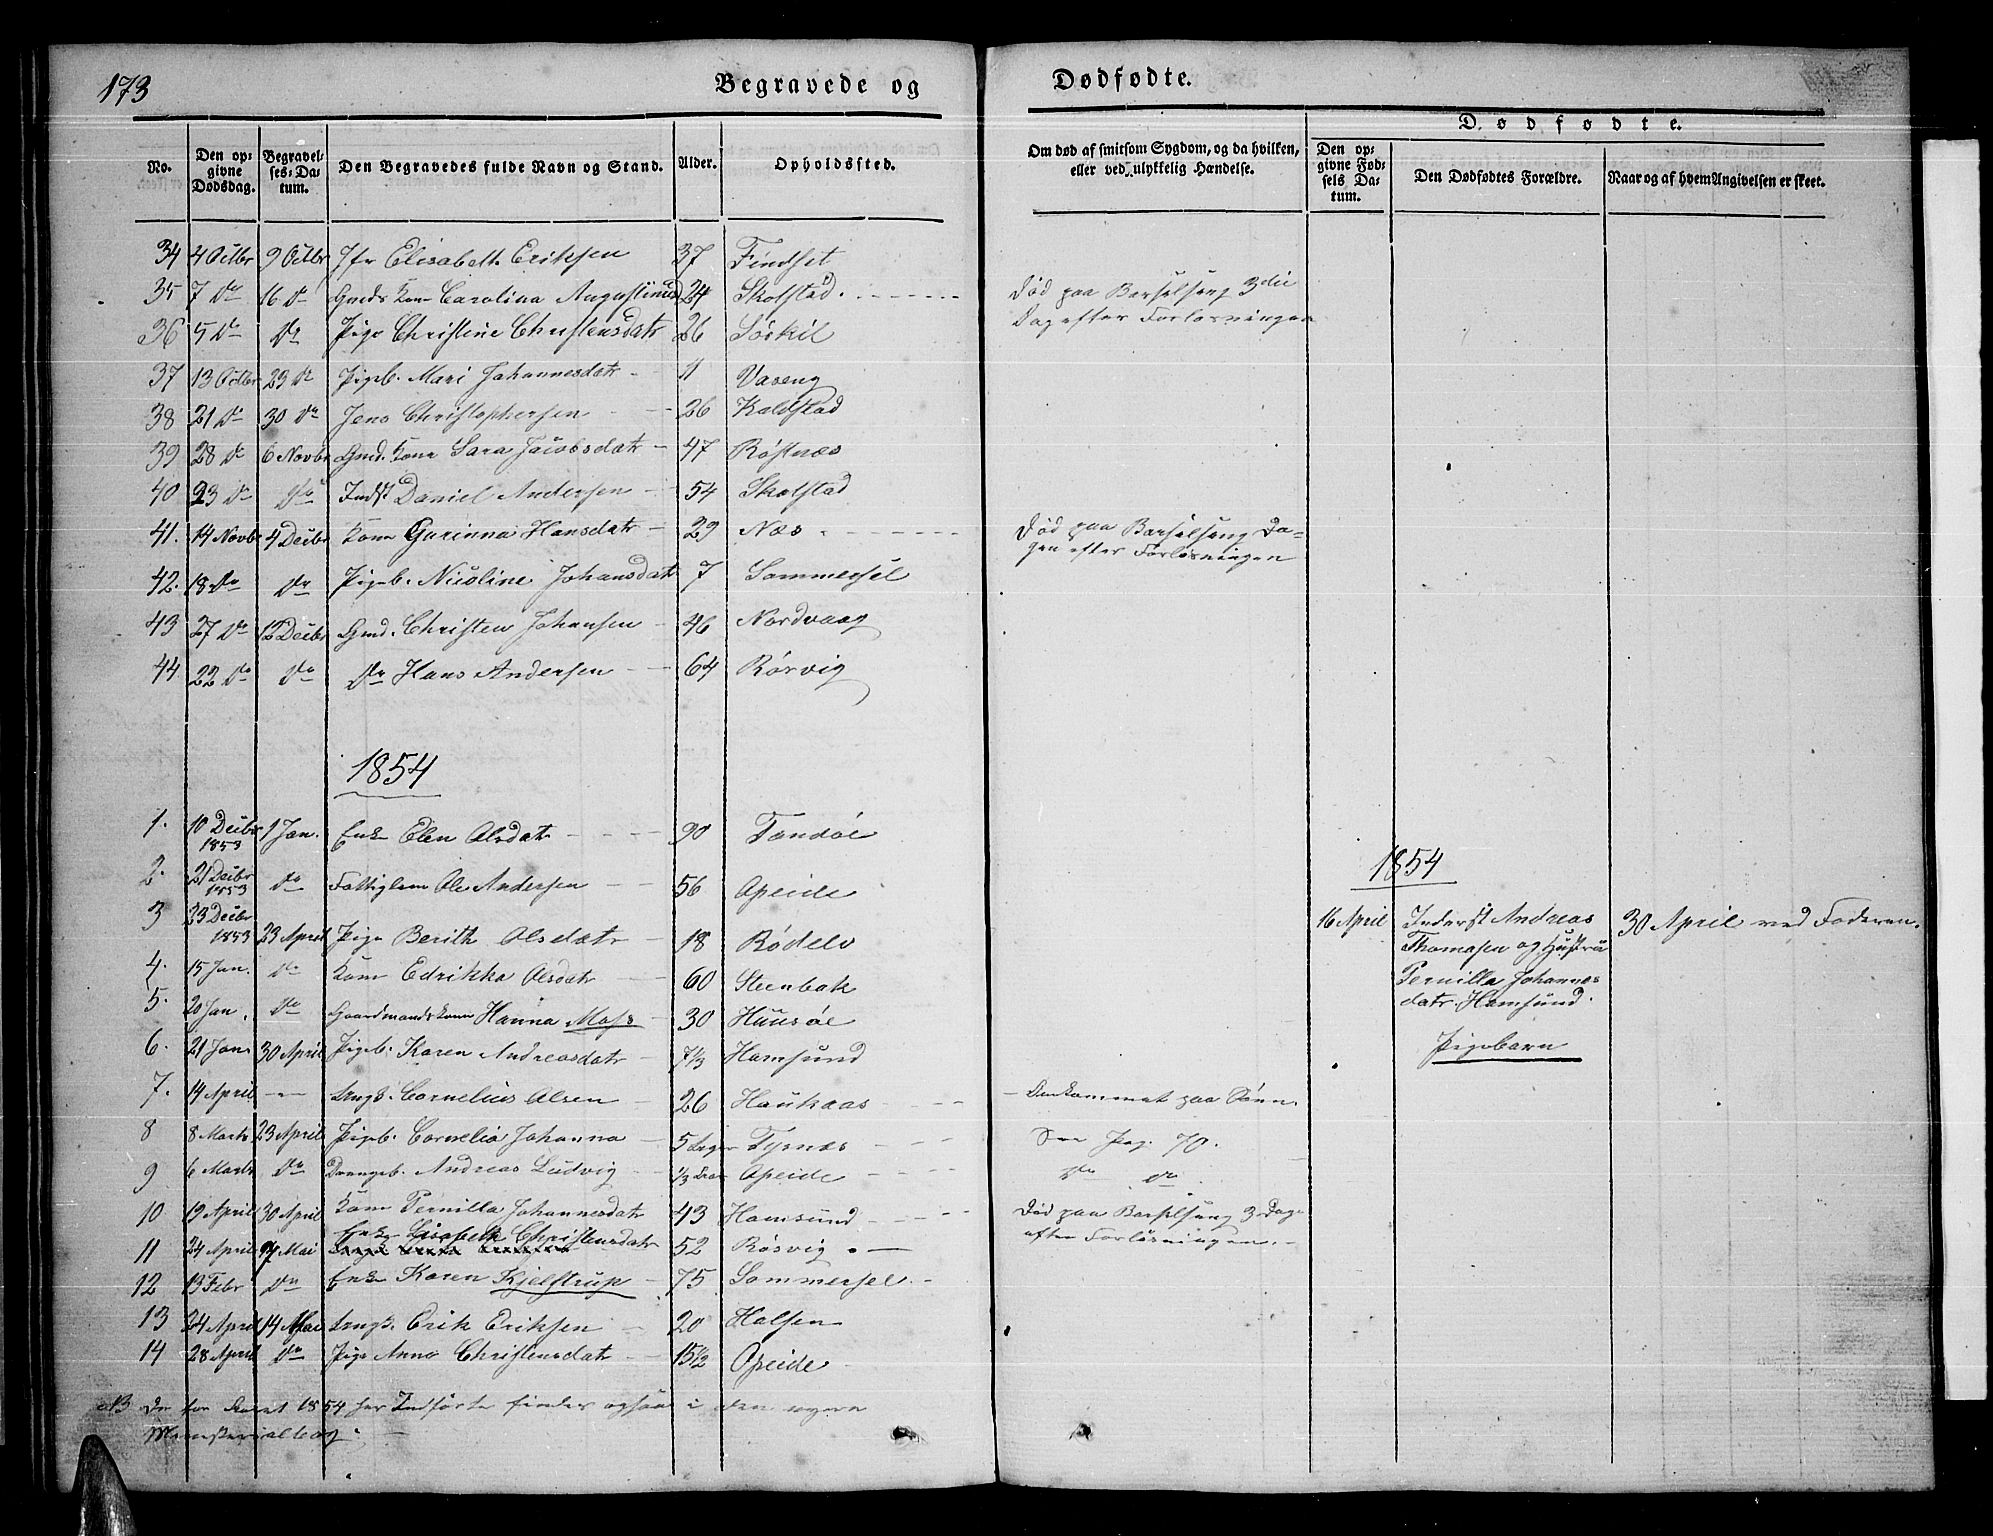 173
Begravede og Dødfødte.
Dødfødte.
No. Den opgivne Dødsdag. Begravelses-Datum. Den Begravedes fulde Navn og Stand. Alder. Opholdssted. Om død af smitsom Sygdom, og da hvilken, eller ved ulykkelig Hændelse. Den opgivne Fødsels Datum. Den Dødfødtes Forældre. Naar og af hvem Angivelsen er skeet.
34 4 Octbr 9 Octbr Jfr Elisabeth Eriksen 37 Findset
35 7 Do 16 Do Gmds Kone Carolina Augustinusd 24 Skolstad Død paa Barselseng 3die
Dag efter Forløsningen
36 5 Do Do Pige Christine Christensdatr 26 Sørkil
37 13 Octbr 23 Do Pigeb. Mari Johannesdatr 11 Vaseng
38 21 Do 30 Do Jens Christophersen 26 Kaldstad
39 28 Do 6 Novbr Gmd. Kone Sara Jacobsdatr 47 Røstnæs
40 23 Do Do Indst Daniel Andersen 54 Skolstad
41. 14 Novbr 4 Decbr Kone Gurinna Hansdatr 29 Næs Død paa Barselseng Da-
gen efter Forløsningen
42. 18 Do Do Pigeb. Nicoline Johansdatr 7 Sommersel
43 27 Do 12 Decbr Gmd. Christen Johansen 46 Nordvaag
44 22 Do Do Do Hans Andersen 64 Rørvig
1854
1. 10 Decbr 1853 1 Jan. Enke Elen Olsdatr 90 Tandøe
2. 21 Decbr 1853 Do Fattiglem Ole Andersen 56 Opeide
3 23 Decbr 1853 23 April Pige Berith Olsdatr 18 Rødelv
4. 15 Jan. Do Kone Edrikka Olsdatr 60 Steenbak
5. 20 Jan. Do Gaardmandskone Hanna Moss 30 Huusøe
6. 21 Jan. 30 April Pigeb. Karen Andreasdatr 7 1/3 Hamsund
7. 14 April Ungk. Cornelius Olsen 26 Haukaas Omkommet paa Søen.
8 8 Marts 23 April Pigeb. Cornelia Johanna 5 Dage Tysnæs See Pag. 70.
9 6 Marts Do Drengeb. Andreas Ludvig 1/3 Opeide Do Do
10 19 April 30 April Kone Pernilla Johannesdatr 43 Hamsund Død paa Barselseng 3 Dage
efter Forløsningen.
11 24 April 7 Mai Enke Lisabeth Christensdatr 52 Røsvig
12 13 Febr Do Enke Karen Kjelstrup 75 Sommersel
13 24 April 14 Mai Ungk. Erik Eriksen 20 Halsen
14 28 April Do Pige Anne Christensdatr 15 1/2 Opeide
NB De for Aaret 1854 her Indførte findes ogsaa i den nyere
Ministerialbog.
1854
16 April Inderst Andreas 30 April ved Faderen.
Thomasen og Hustru
Pernilla Johannes
datr. Hamsund.
Pigebarn